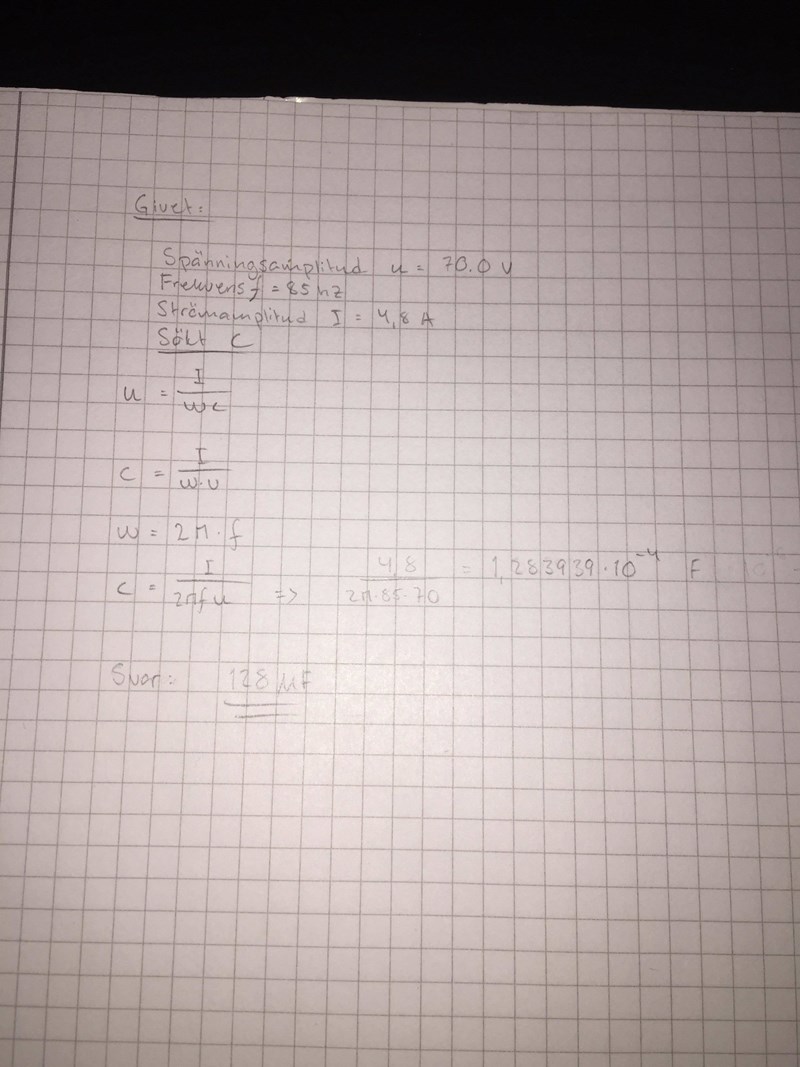 Givet:
Spänningsamplitud u = 70.0 V
Frekvens f = 85 hz
Strömamplitud I = 4,8 A
Sökt C
u = I / wc
c = I / w·u
w = 2π · f
c = I / 2πfu => 4,8 / 2π·85·70 = 1,283939·10^-4 F
Svar: 128 μF